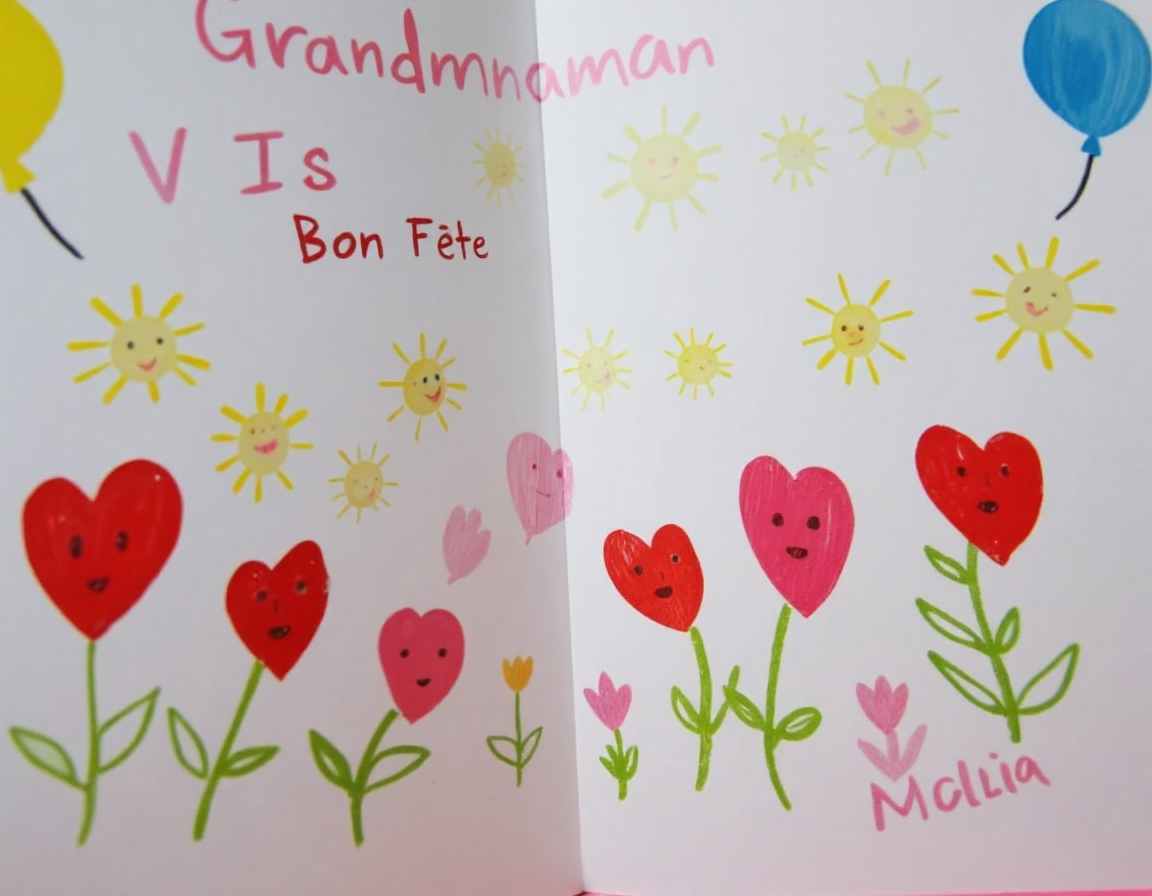 Grandmnaman
V Is
Bon Fête
McLiia